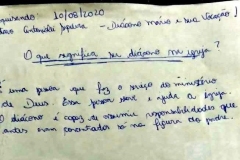 10/08/2020
- Diácono Mário e sua Vocação
O que significa ser diácono na igreja?
É uma pessoa que fez o serviço do ministério
de Deus. Essa pessoa serve e ajuda a igreja.
O diácono é capaz de assumir responsabilidades que
antes eram concentradas só na figura do padre.